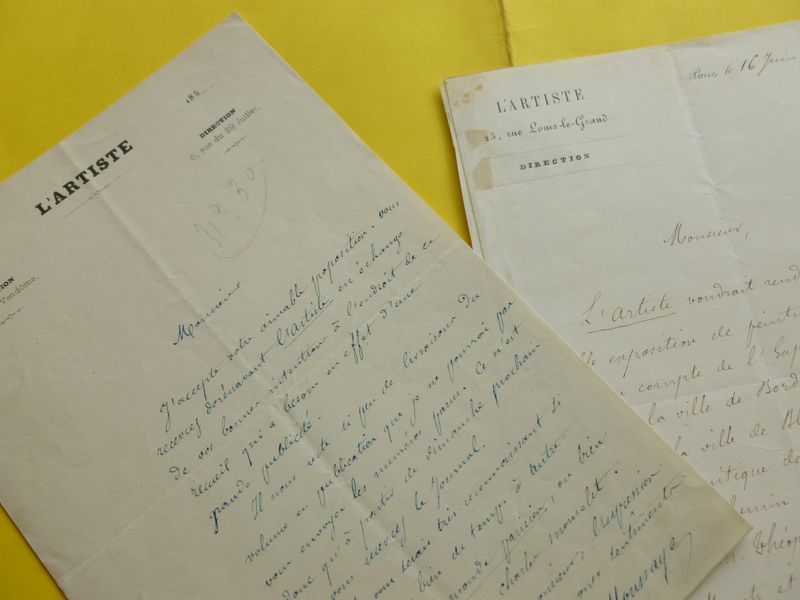 L'ARTISTE
185
DIRECTION
6, rue du 29 Juillet.
Vendôme.
N° 30
Monsieur
J'accepte votre aimable proposition. Vous
recevrez dorénavant l'artiste en échange
de vos bonnes intentions à l'endroit de ce
recueil qui a besoin en effet d'une
grande publicité.
Il nous reste si peu de livraisons du
volume en publication que je ne pourrai pas
vous envoyer les numéros parus. Ce n'est
donc qu'à partir de dimanche prochain
vous recevrez le Journal.
vous serais très reconnaissant si
bien de temps à autre
monde parisien, ou bien
Charles Monselet.
Monsieur, l'expression
mes sentiments
Houssaye
L'ARTISTE
25, rue Louis-le-Grand.
DIRECTION
Paris, le 16 Juin
Monsieur,
L'Artiste voudrait rend
exposition de peintu
compte de l'Exp
la ville de Bord
la ville de Bl
de
Théop
et